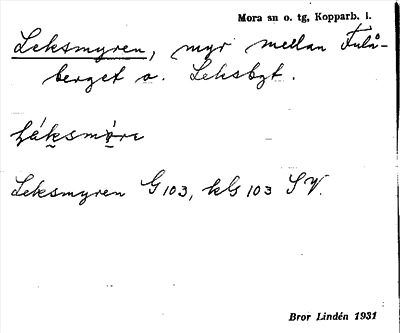 Mora sn o. tg, Kopparb. l.
Leksmyren, myr mellan Fulå-
berget o. Leksbgt.
Leksmyren G 103, kls 103 SV.
Bror Lindén 1931